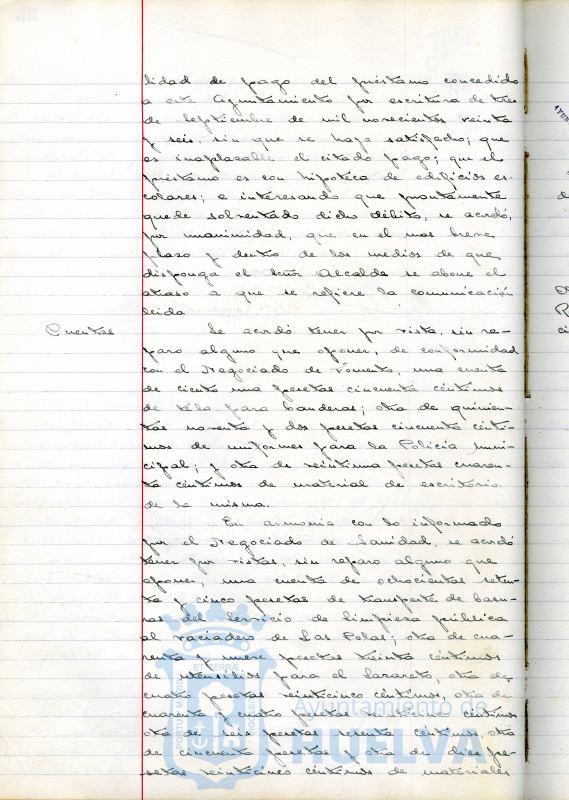 lidad de pago del préstamo concedido
a este Ayuntamiento por escritura de tres
de Septiembre de mil novecientos veinte
y seis, sin que se haya satisfecho; que
es inaplazable el citado pago; que el
préstamo es con hipoteca de edificios es-
colares; e interesando que prontamente
quede solventado dicho débito, se acordó,
por unanimidad, que en el mas breve
plazo y dentro de los medios de que
disponga el Señor Alcalde se abone el
atraso a que se refiere la comunicación
leida
Cuentas
Se acordó tener por vista, sin re-
paro alguno que oponer, de conformidad
con el Negociado de Fomento, una cuenta
de ciento una pesetas cincuenta céntimos
de tela para banderas; otra de quinien-
tas noventa y dos pesetas cincuenta cénti-
mos de uniformes para la Policía Muni-
cipal; y otra de veintiuna pesetas cuaren-
ta céntimos de material de escritorio
de la misma.
En armonía con lo informado
por el Negociado de Sanidad, se acordó
tener por vistas, sin reparo alguno que
oponer, una cuenta de ochocientas seten-
ta y cinco pesetas de transporte de basu-
ras del Servicio de limpieza pública
al vaciadero de Las Polas; otra de cua-
renta y nueve pesetas treinta céntimos
de utensilios para el Lazareto, otra de
cuatro pesetas veinticinco céntimos, otra de
cuarenta y cuatro pesetas céntimos
otra de seis pesetas sesenta céntimos, otra
de cincuenta pesetas y otra de diez pe-
setas veinticinco céntimos de materiales
Ayuntamiento de
HUELVA